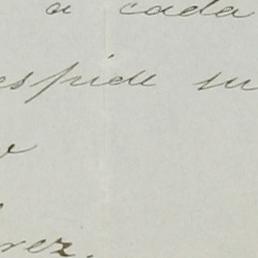 a cada
espide su
rez.